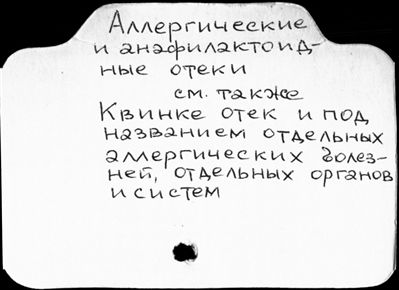 Аллергические
и анафилактоид-
ные отеки
см. также
Квинке отек и под
названием отдельных
аллергических болез-
ней, отдельных органов
и систем